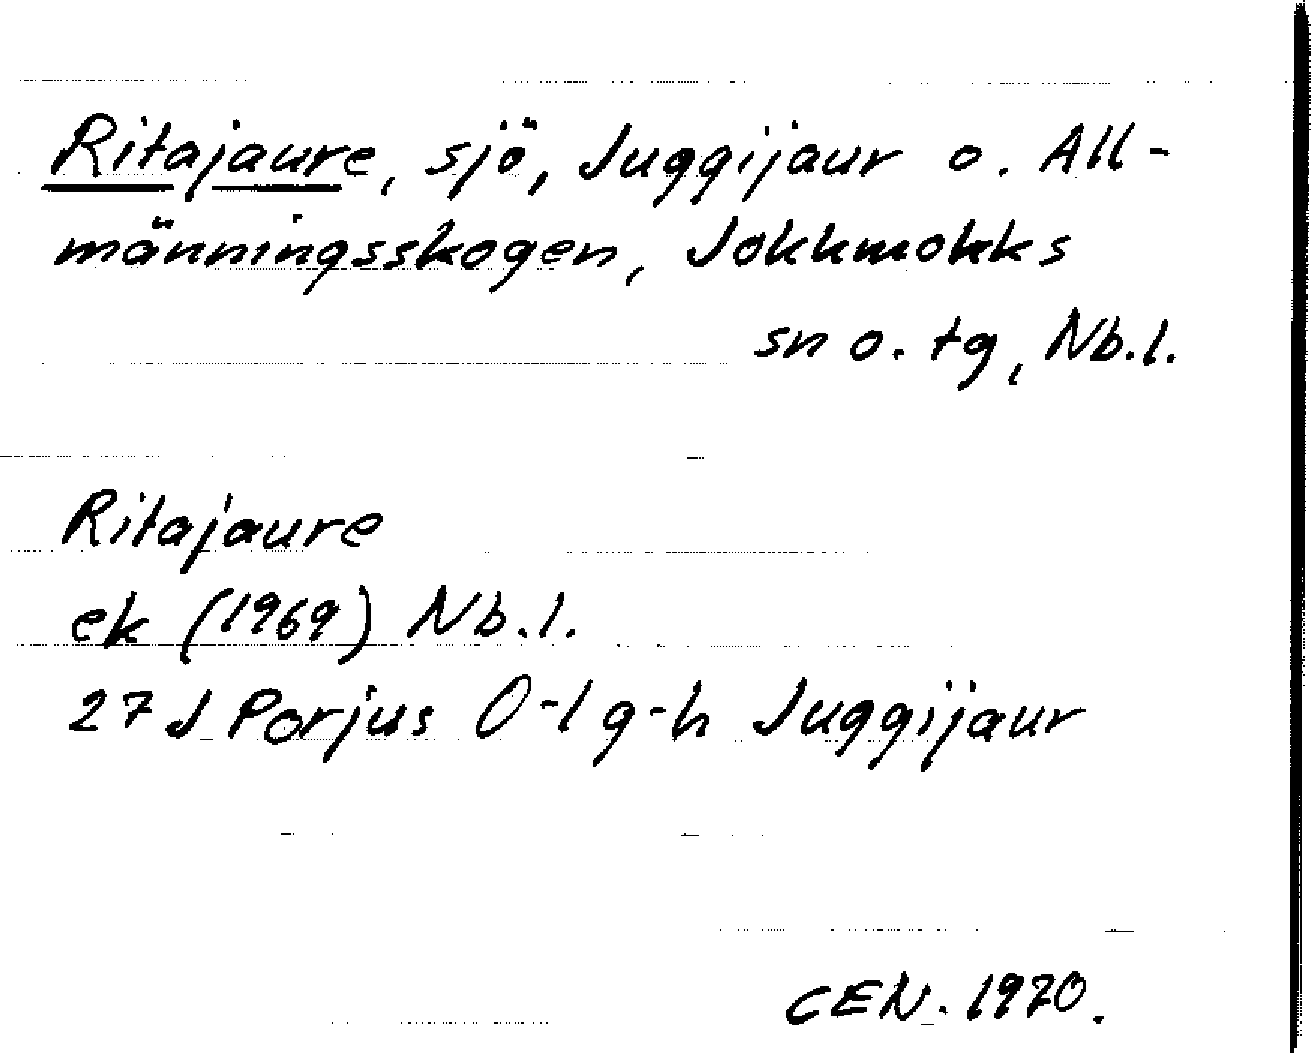 Ritajaure, sjö, Juggijaur o. All-
männingsskogen, Jokkmokks
sn o. tg, Nb.l.
Ritajaure
ek (1969) Nb.l.
27 J Porjus 0-1 g-h Juggijaur
CEN. 1970.